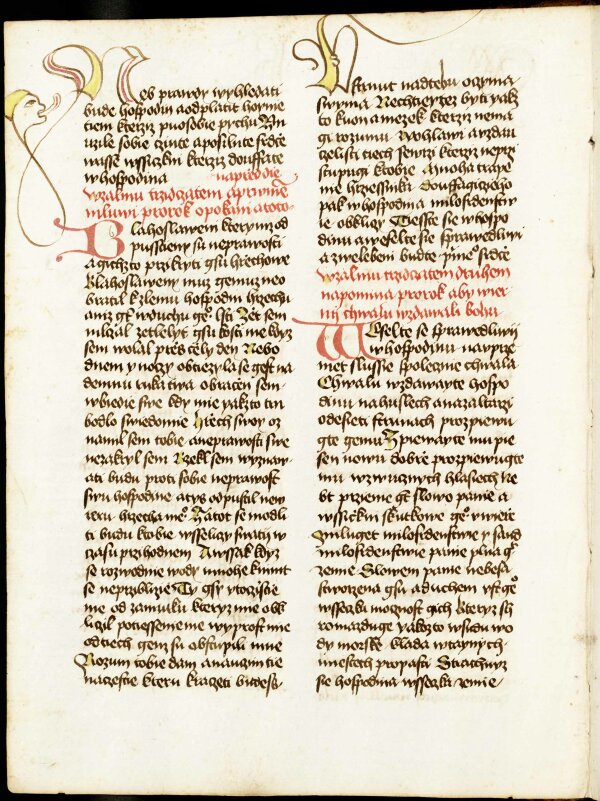 Neb prawdy wyhledati
bude hospodin a odplatit hoynie
tiem kterziz puosobie pychu Mu
zile sobie czinte a posilnte srdce
wasse wssickni kterziz douffate
w hospodina napred die
W zalmu trzidczatem a prwnie
mluwi prorok o pokani a toto
Blahoslaweni kterym od
pusstieny su neprawosti
a gichzto przikryti gsu hrzechowe
Blahoslaweny muz gemuz neo
bratil k zlemu hospodin hrzechu
aniz gt w duchu ge° lsti Ze sem
mlczal zetlely gsu kosti me kdyz
sem wolal przes cely den Nebo
dnem y noczy obtiezyla se gest na
demnu ruka twa obraczen sem
w biedie swe kdy mie yakzto trn
bodlo swiedomie Hrzech swoy oz
namil sem tobie a neprawosti swe
nezakryl sem Rzekl sem wyznaw
ati budu proti sobie neprawost
swu hospodine a tys odpustil new
ieru hrzecha me° Zatot se modli
ti budu k tobie wsseliky swaty w
czasu przihodnem Awssak kdyz
se rozwodnie wody mnohe k niemu
se neprziblizie Ty gsy vtoczisstie
me od zamutku kteryz mie obk
liczil potiessenie me wyprost mie
od tiech genz su obstupili mne
Rozum tobie dam a nauczim tie
na cestie kteru kraczeti budess
Vstanut nad tebu oczyma
swyma Nechtiegtez byti yakz
to kuon a mezek kterziz nema
gi rozumu W ohlawi a vzdau
czelisti tiech sewrzi kterziz neprzi
stupugi k tobie A mnoha trape
nie hrziessnika Douffagicieho
pak w hospodina milosrdenstw
ie obkliczi Tiesstie se w hospo
dinu a weselte se sprawedliwi
a zwelebeni budte prime° srdce
W zalmu trzidczatem druhem
napomina prorok aby wier
nij chwalu wzdawali bohu
Weselte se sprawedliwij
w hospodinu na uprze
met slussie spoleczne chwala
Chwalu wzdawayte hospo
dinu na huslech a na zaltarzi
o deseti strunach prozpiewu
gte gemu Zpiewayte mu pie
sen nowu dobrze prozpiewugte
mu w zwucznych hlasiech Ne
bt przieme gt slowo panie a
wssickni skutkowe ge° v wierze
Miluget milosrdenstwie y saud
milosrdenstwie panie plna gt
zemie Slowem panie nebesa
stworzena gsu a duchem vst ge°
wsseczka moznost gich Kteryz sh
romazduge yakzto w sudu wo
dy morzske klada w tagnych
miestech propasti Strachuyz
se hospodina wsseczka zemie